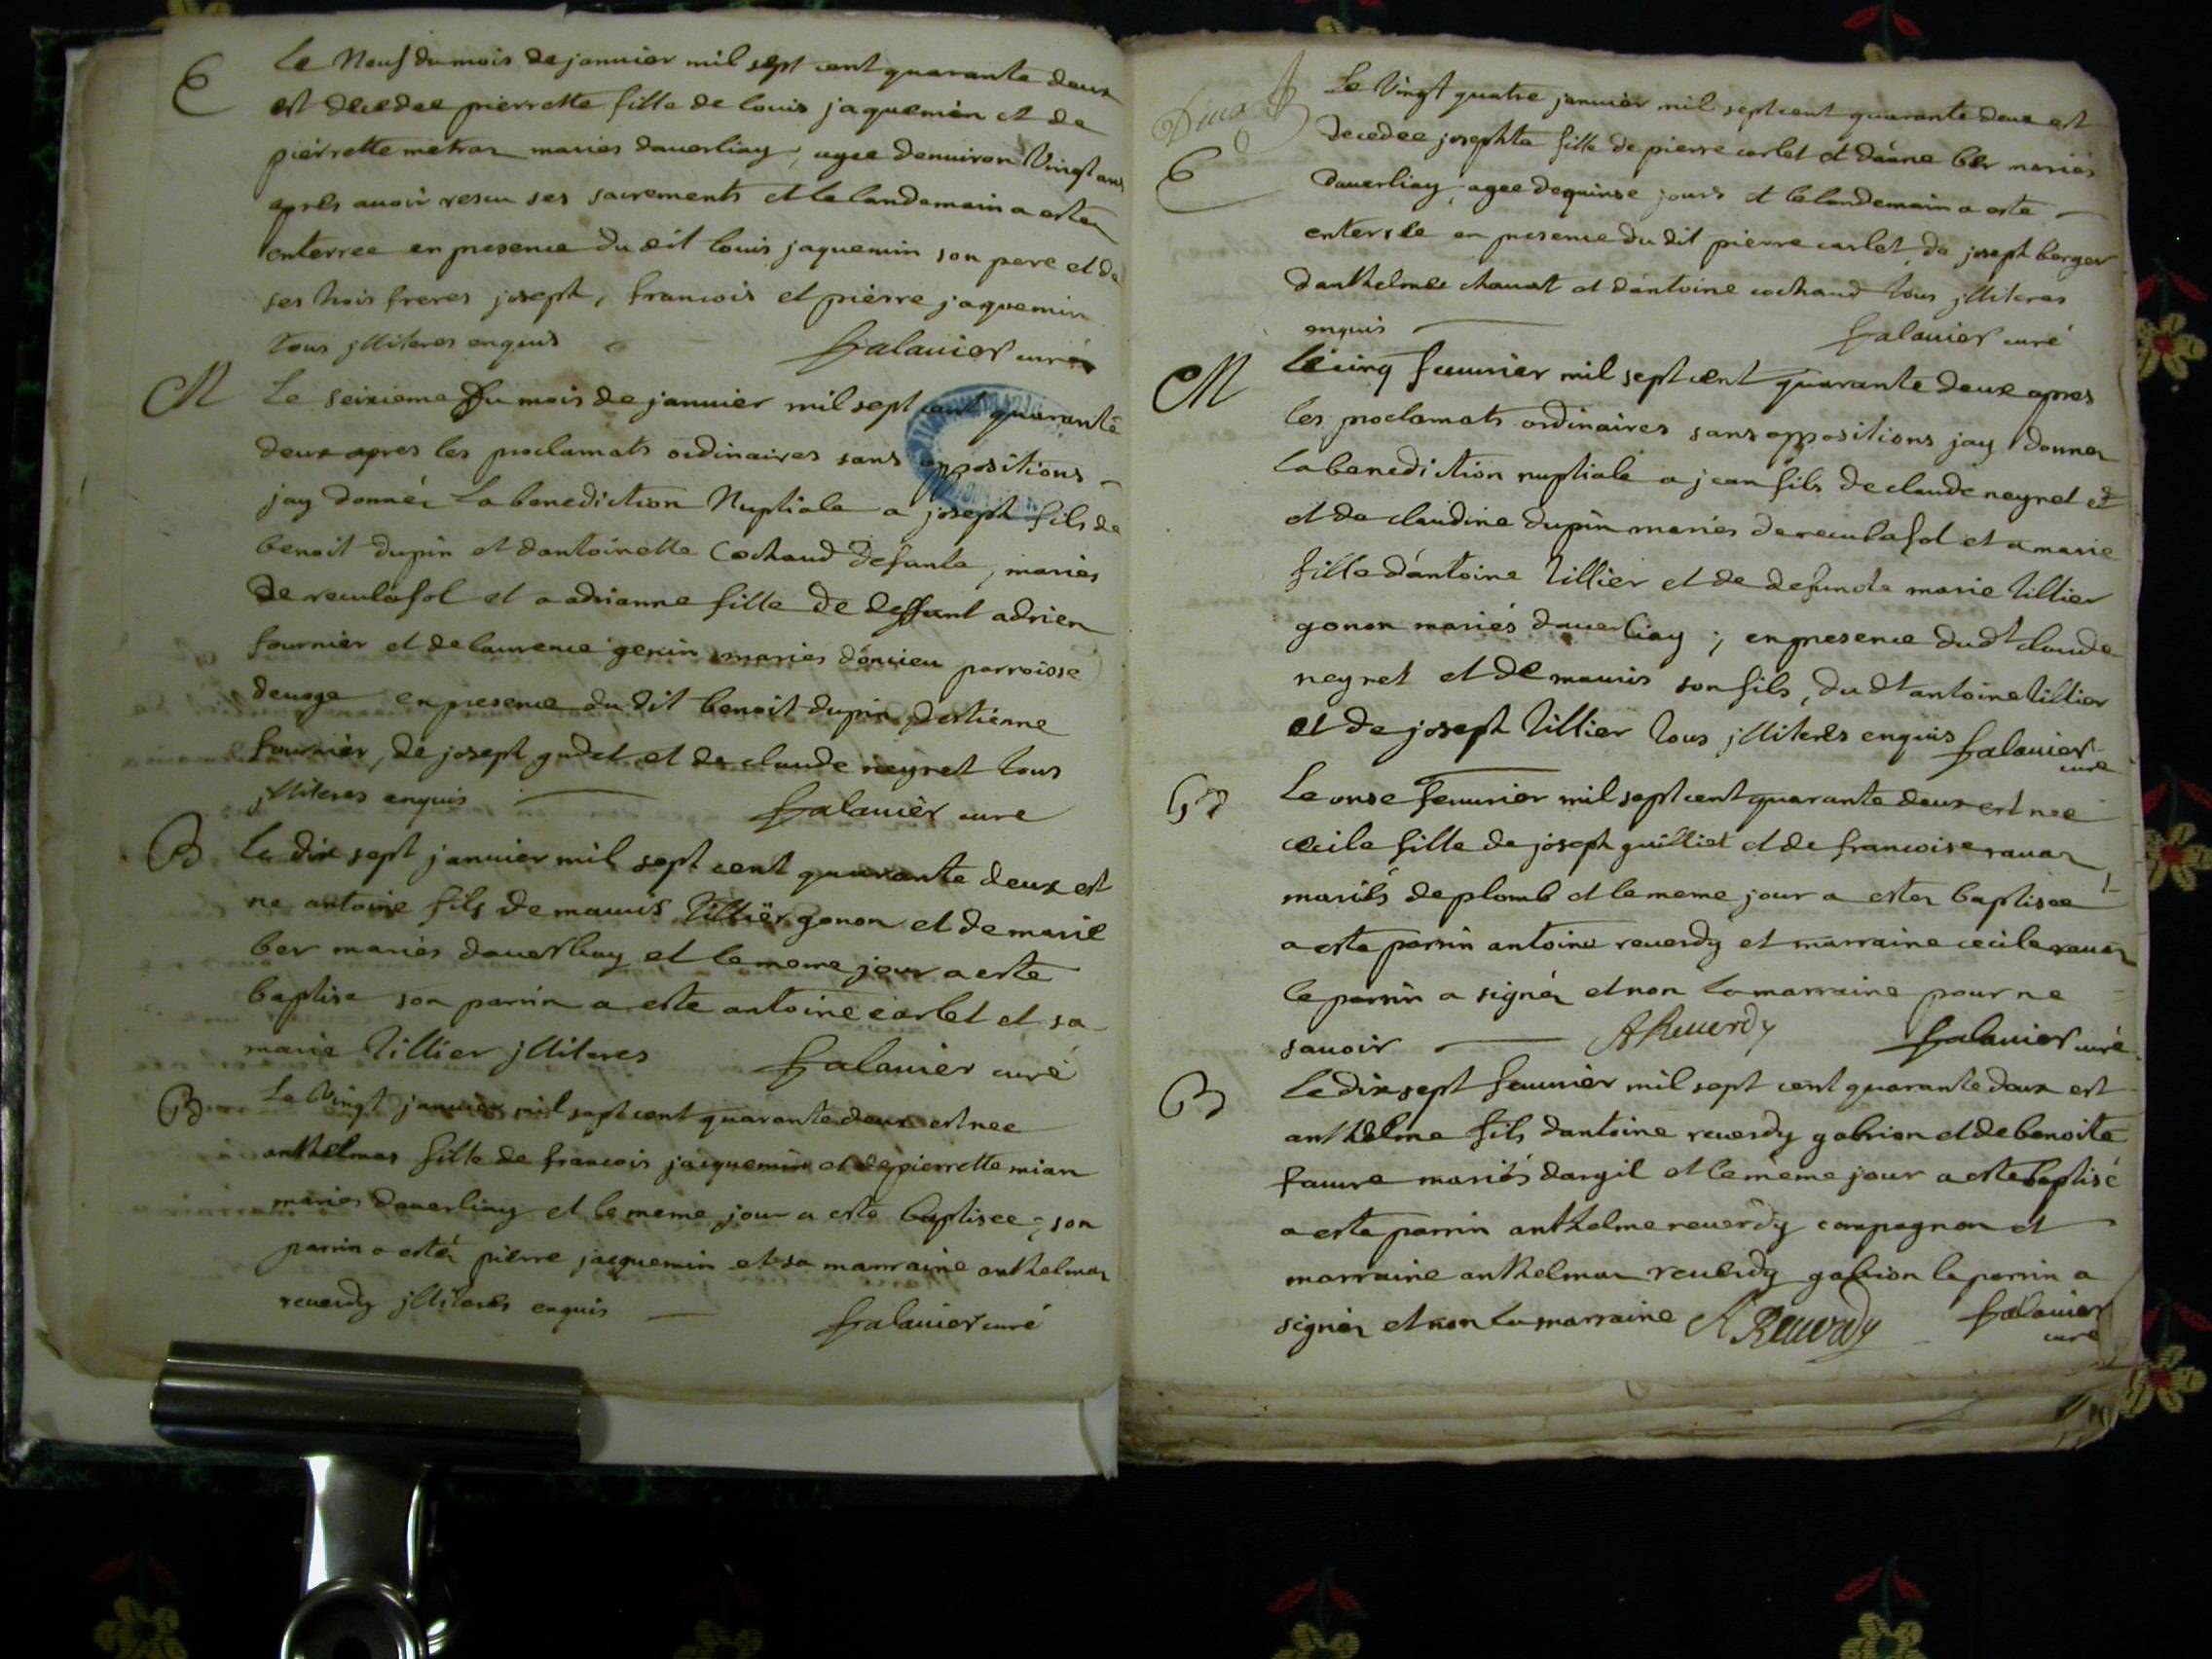 E
Le Neuf du mois de janvier mil sept cent quarante deux
est decedee pierrette fille de louis jaquemin et de
pierrette metraz mariés daverliay, agee denviron Vingt ans
apres avoir reseu ses sacrements et le landemain a estez
enterree en presence du dit louis jaquemin son pere et de
ses trois freres joseph, francois et pierre jaquemin
tous jlliteres enquis falavier curé
M
Le seixieme du mois de janvier mil sept cent quarante
deux apres les proclamats ordinaires sans oppositions
jay donnéz La benediction Nuptiale a joseph fils de
benoit dupin et dantoinette Cochaud defante, mariés
de reculafol et a adrianne fille de deffunt adrien
fournier et de laurence genin mariés doncieu parroisse
denoge en presence du dit benoit dupin destienne
fournier, de joseph gudet et de claude neyret tous
jlliteres enquis falavier cure
B
Le dix sept janvier mil sept cent quarante deux est
ne antoine fils de mauris Tillier gonon et de marie
ber mariés daverliay et le meme jour a este
baptise son parrin a este antoine carlet et sa
marie Tillier jlliteres falavier curé
B
Le Vingt janvier mil sept cent quarante deux est nee
anthelmaz fille de francois jacquemin et de pierrette mian
mariés daverliay et le meme jour a este baptisee, son
parrin a estéz pierre jacquemin et sa marraine anthelmaz
reverdy jlliterés enquis falavier curé
E
Le Vingt quatre janvier mil sept cent quarante deux est
decedee josephte fille de pierre carlet et danne ber mariés
daverliay, agee de quinse jours et le landemain a este
enterree en presence du dit pierre carlet, de joseph berger
danthelme chavat et dantoine cochaud tous jlliteres
enquis falavier curé
M
Le cinq fevvrier mil sept cent quarante deux apres
les proclamats ordinaires sans oppositions jay donnez
la benediction nuptiale a jean fils de claude neyret et
et de claudine dupin mariés de reculafol et a marie
fille dantoine tillier et de defuncte marie tillier
gonon mariés daverliay ; en presence dudt claude
neyret et de mauris son fils, du dt antoine tillier
et de joseph tillier tous jlliterés enquis falavier
cure
B
Le onse fevvrier mil sept cent quarante deux est nee
cecile fille de joseph guilliet et de francoise ravaz
mariés de plomb et le meme jour a estez baptisee
a este parrin antoine reverdy et marraine cecile ravaz
le parrin a signéz et non la marraine pour ne
savoir AReverdy falavier curé
B
Le dix sept fevvrier mil sept cent quarante deux est
anthelme fils dantoine reverdy gabrion et de benoite
favvre mariés dargil et le meme jour a este baptisé
a este parrin anthelme reverdy compagnon et
marraine anthelmaz reverdy gabrion le parrin a
signéz et non la marraine A Reverdy falavier
cure